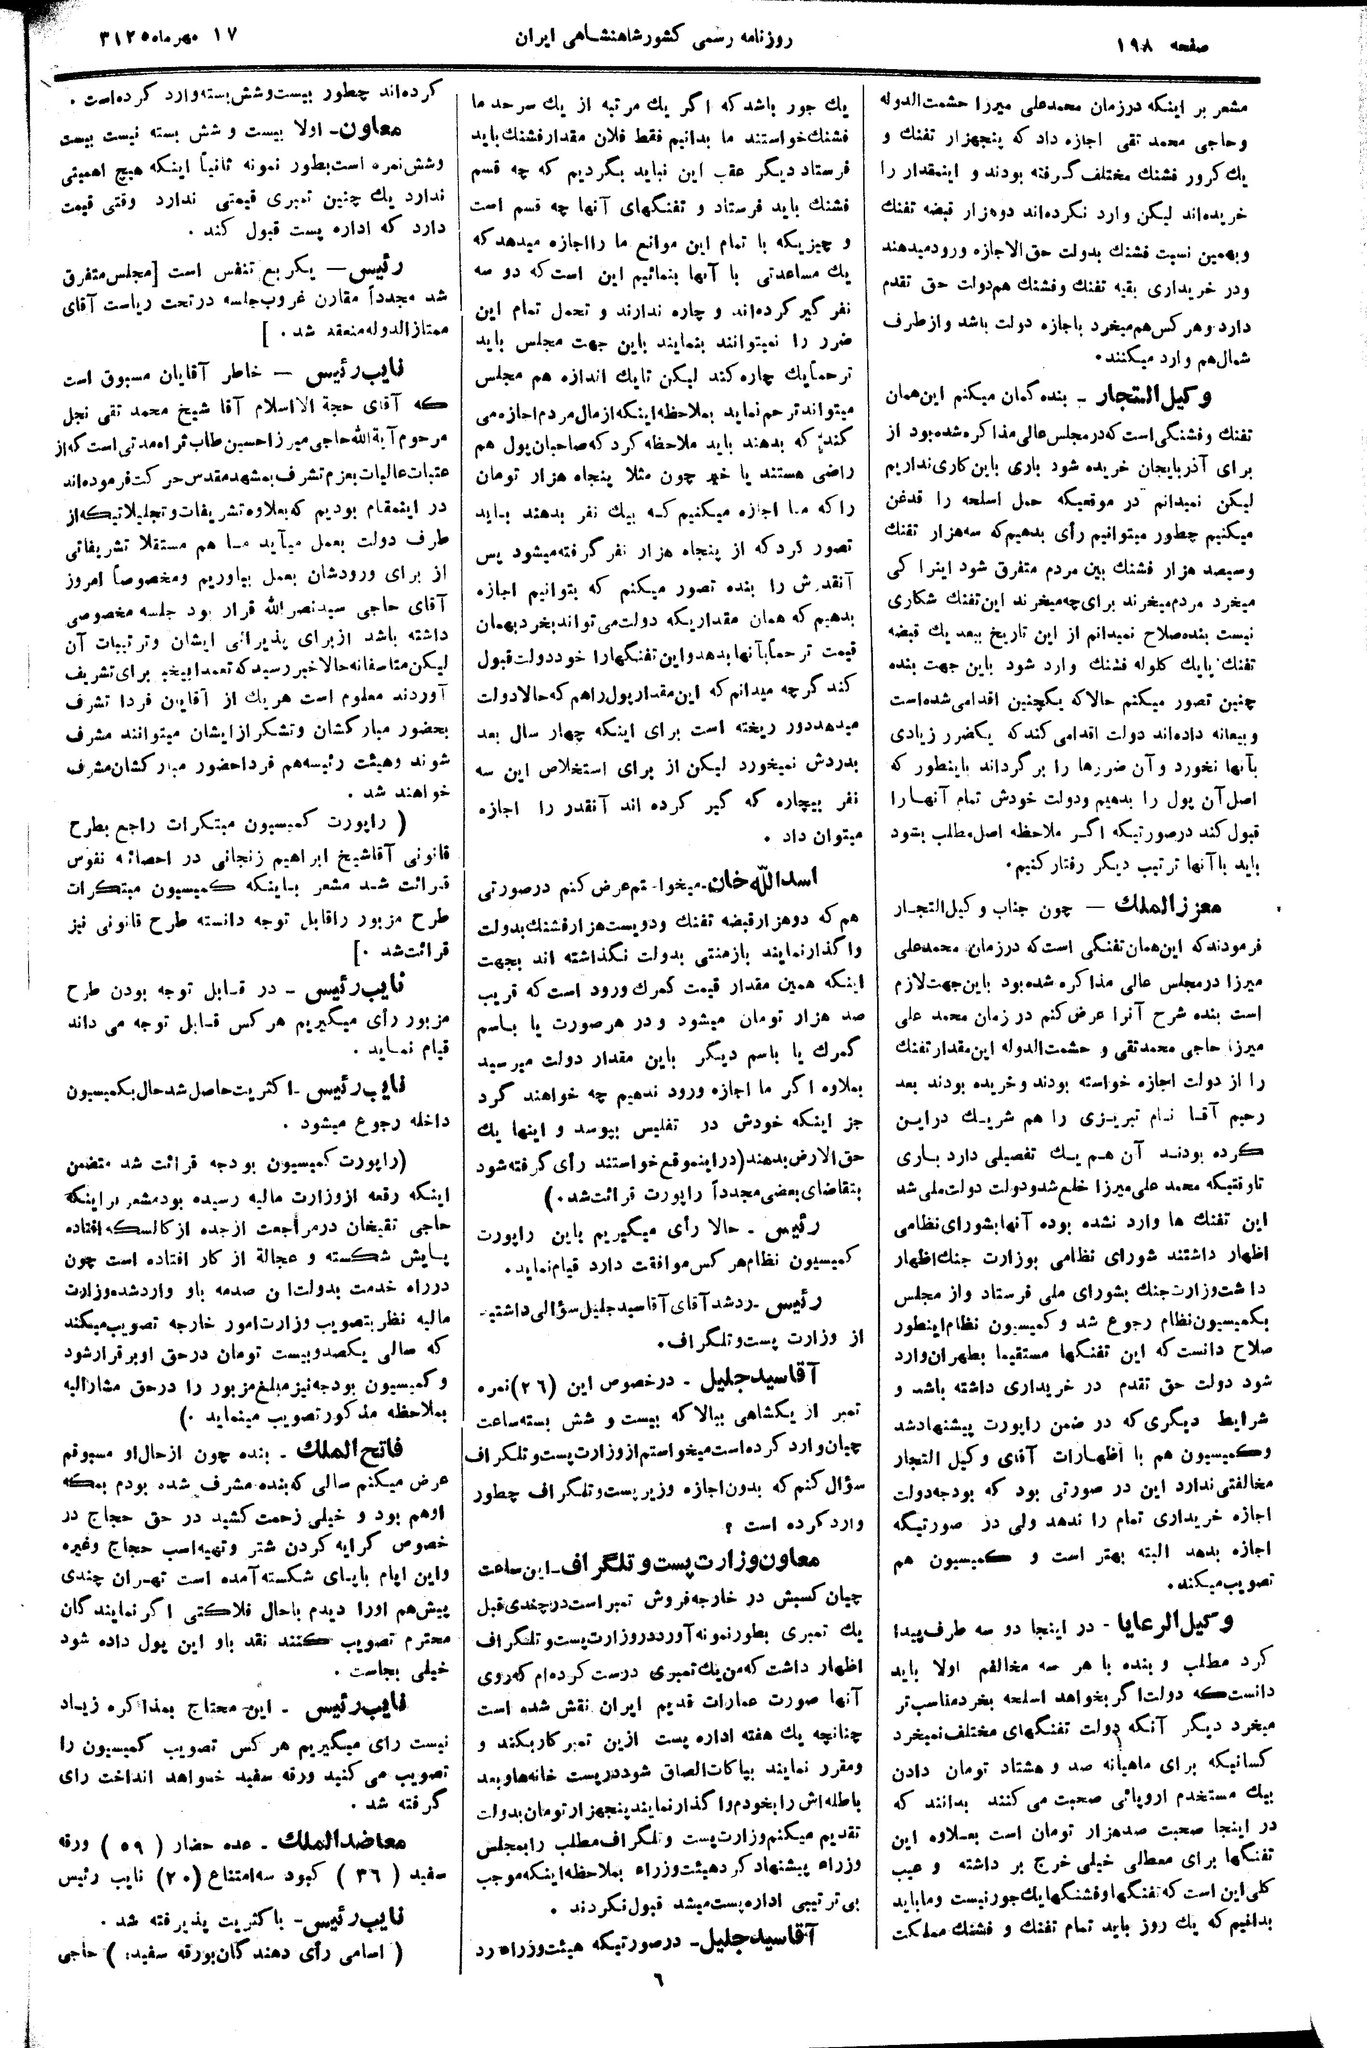 صفحه ۱۹۸
روزنامه رسمی کشور شاهنشاهی ایران
۱۷ مهرماه ۳۱۲۵
مشعر بر اینکه در زمان محمد علی میرزا حشمت الدوله
و حاجی محمد تقی اجازه داد که پنجهزار تفنك و
یك کرور فشنك مختلف گرفته بودند و اینمقدار را
خریده‌اند لیکن وارد نکرده‌اند دو هزار قبضه تفنك
و بهمین نسبت فشنك بدولت حق الاجازه ورود میدهند
و در خریداری بقیه تفنك و فشنك هم دولت حق تقدم
دارد و هر کس هم میخرد با جازه دولت باشد و از طرف
شمال هم وارد میکنند.
وکیل التجار ـ بنده گمان میکنم این همان
تفنك و فشنگی است که در مجلس عالی مذاکره شده بود از
برای آذربایجان خریده شود باری باین کاری نداریم
لیکن نمیدانم در موقعیکه حمل اسلحه را قدغن
میکنیم چطور میتوانیم رأی بدهیم که سه هزار تفنك
و سیصد هزار فشنك بین مردم متفرق شود اینرا کی
میخرد مردم میخرند برای چه میخرند این تفنك شکاری
نیست بنده صلاح نمیدانم از این تاریخ ببعد یك قبضه
تفنك یا یك کلوله فشنك وارد شود باین جهت بنده
چنین تصور میکنم حالا که یکچنین اقدامی شده است
و بیعانه داده‌اند دولت اقدامی کند که یکضرر زیادی
بآنها نخورد و آن ضررها را برگرداند باینطور که
اصل آن پول را بدهیم و دولت خودش تمام آنها را
قبول کند درصورتیکه اگر ملاحظه اصل مطلب بشود
باید با آنها ترتیب دیگر رفتار کنیم.
معزز الملك — چون جناب وکیل التجار
فرمودند که این همان تفنگی است که در زمان محمد علی
میرزا در مجلس عالی مذاکره شده بود باین جهت لازم
است بنده شرح آنرا عرض کنم در زمان محمد علی
میرزا حاجی محمد تقی و حشمت الدوله این مقدار تفنك
را از دولت اجازه خواسته بودند و خریده بودند بعد
رحیم آقا نام تبریزی را هم شریك در این
کرده بودند آن هم یك تفصیلی دارد باری
تا وقتیکه محمد علی میرزا خلع شد و دولت دولت ملی شد
این تفنك ها وارد نشده بوده آنها بشورای نظامی
اظهار داشتند شورای نظامی بوزارت جنك اظهار
داشت وزارت جنك بشورای ملی فرستاد و از مجلس
بکمیسیون نظام رجوع شد و کمیسیون نظام اینطور
صلاح دانست که این تفنگها مستقیما بطهران وارد
شود دولت حق تقدم در خریداری داشته باشد و
شرایط دیگری که در ضمن راپورت پیشنهاد شد
و کمیسیون هم با اظهارات آقای وکیل التجار
مخالفتی ندارد این در صورتی بود که بودجه دولت
اجازه خریداری تمام را ندهد ولی در صورتیگه
اجازه بدهد البته بهتر است و کمیسیون هم
تصویب میکند.
وکیل الرعایا ـ در اینجا دو سه طرف پیدا
کرد مطلب و بنده با هر سه مخالفم اولا باید
دانست که دولت اگر بخواهد اسلحه بخرد مناسب تر
میخرد دیگر آنکه دولت تفنگهای مختلف نمیخرد
کسانیکه برای ماهیانه صد و هشتاد تومان دادن
بیك مستخدم اروپائی صحبت می کنند بدانند که
در اینجا صحبت صد هزار تومان است بعلاوه این
تفنگها برای معطلی خیلی خرج بر داشته و عیب
کلی این است که تفنگها و فشنگها یك جور نیست و ما باید
بدانیم که یك روز باید تمام تفنك و فشنك مملکت
یك جور باشد که اگر یك مرتبه از یك سرحد ما
فشنك خواستند ما بدانیم فقط فلان مقدار فشنك باید
فرستاد دیگر عقب این نباید بگردیم که چه قسم
فشنك باید فرستاد و تفنگهای آنها چه قسم است
و چیزیکه با تمام این موانع ما را اجازه میدهد که
یك مساعدتی با آنها بنمائیم این است که دو سه
نفر گیر کرده‌اند و چاره ندارند و تحمل تمام این
ضرر را نمیتوانند بنمایند باین جهت مجلس باید
ترحماً یك چاره کند لیکن تا یك اندازه هم مجلس
میتواند ترحم نماید بملاحظه اینکه از مال مردم اجازه می
کند که بدهند باید ملاحظه کرد که صاحبان پول هم
راضی هستند یا خیر چون مثلا پنجاه هزار تومان
را که ما اجازه میکنیم که بیك نفر بدهند باید
تصور کرد که از پنجاه هزار نفر گرفته میشود پس
آنقدرش را بنده تصور میکنم که بتوانیم اجازه
بدهیم که همان مقداریکه دولت می تواند بخرد بهمان
قیمت ترحماً بآنها بدهد و این تفنگها را خود دولت قبول
کند گرچه میدانم که این مقدار پول را هم که حالا دولت
میدهد دور ریخته است برای اینکه چهار سال بعد
بدردش نمیخورد لیکن از برای استخلاص این سه
نفر بیچاره که گیر کرده اند آنقدر را اجازه
میتوان داد .
اسدالله خان ـ میخواستم عرض کنم در صورتی
هم که دو هزار قبضه تفنك و دویست هزار فشنك بدولت
واگذار نمایند باز منتی بدولت نگذاشته اند بجهت
اینکه همین مقدار قیمت گمرك ورود است که قریب
صد هزار تومان میشود و در هر صورت یا باسم
گمرك یا باسم دیگر باین مقدار دولت میرسید
بعلاوه اگر ما اجازه ورود ندهیم چه خواهند کرد
جز اینکه خودش در تفلیس بپوسد و اینها یك
حق الارض بدهند (در اینموقع خواستند رأی گرفته شود
بتقاضای بعضی مجدداً راپورت قرائت شد.)
رئیس ـ حالا رأی میگیریم باین راپورت
کمیسیون نظام هر کس موافقت دارد قیام نماید.
رئیس ـ رد شد آقای آقا سید جلیل سؤالی داشتید
از وزارت پست و تلگراف.
آقا سید جلیل ـ در خصوص این (۲۶) نمره
تمبر از یکشاهی ببالا که بیست و شش بسته ساعت
چیان وارد کرده است میخواستم از وزارت پست و تلگراف
سؤال کنم که بدون اجازه وزیر پست و تلگراف چطور
وارد کرده است ؟
معاون وزارت پست و تلگراف ـ این ساعت
چیان کسبش در خارجه فروش تمبر است در چندی قبل
یك تمبری بطور نمونه آورد در وزارت پست و تلگراف
اظهار داشت که من یك تمبری درست کرده ام که روی
آنها صورت عمارات قدیم ایران نقش شده است
چنانچه یك هفته اداره پست از این تمبر کار بکند و
و مقرر نمایند بپاکات الصاق شود در پست خانه ها و بعد
باطله‌اش را بخودم واگذار نمایند پنجهزار تومان بدولت
تقدیم میکنم وزارت پست و تلگراف مطلب را بمجلس
وزراء پیشنهاد کرد هیئت وزراء بملاحظه اینکه موجب
بی ترتیبی اداره پست میشد قبول نکردند .
آقا سید جلیل ـ درصورتیکه هیئت وزراء رد
کرده‌اند چطور بیست و شش بسته وارد کرده است .
معاون ـ اولا بیست و شش بسته نیست بیست
و شش نمره است بطور نمونه ثانیاً اینکه هیچ اهمیتی
ندارد یك چنین تمبری قیمتی ندارد وقتی قیمت
دارد که اداره پست قبول کند .
رئیس — یکربع تنفس است [مجلس متفرق
شد مجدداً مقارن غروب جلسه در تحت ریاست آقای
ممتاز الدوله منعقد شد . ]
نایب رئیس — خاطر آقایان مسبوق است
که آقای حجة الاسلام آقا شیخ محمد تقی نجل
مرحوم آیة الله حاجی میرزا حسین طاب ثراه مدتی است که از
عتبات عالیات بعزم تشرف بمشهد مقدس حرکت فرموده‌اند
در اینمقام بودیم که بعلاوه تشریفات و تجلیلاتیکه از
طرف دولت بعمل میآید ما هم مستقلا تشریفاتی
از برای ورودشان بعمل بیاوریم و مخصوصاً امروز
آقای حاجی سید نصرالله قرار بود جلسه مخصوصی
داشته باشد از برای پذیرائی ایشان و ترتیبات آن
لیکن متأسفانه حالا خبر رسید که تعمداً بیخبر برای تشریف
آوردند معلوم است هر یك از آقایان فردا تشرف
بحضور مبارکشان و تشکر از ایشان میتوانند مشرف
شوند و هیئت رئیسه هم فردا حضور مبارکشان مشرف
خواهند شد .
( راپورت کمیسیون مبتکرات راجع بطرح
قانونی آقا شیخ ابراهیم زنجانی در احصائه نفوس
قرائت شد مشعر باینکه کمیسیون مبتکرات
طرح مزبور را قابل توجه دانسته طرح قانونی نیز
قرائت شد .]
نایب رئیس ـ در قابل توجه بودن طرح
مزبور رأی میگیریم هر کس قابل توجه می داند
قیام نماید .
نایب رئیس ـ اکثریت حاصل شد حال بکمیسیون
داخله رجوع میشود .
(راپورت کمیسیون بودجه قرائت شد متضمن
اینکه رقعه از وزارت مالیه رسیده بود مشعر بر اینکه
حاجی تقیخان در مراجعت از جده از کالسکه افتاده
پایش شکسته و عجالة از کار افتاده است چون
در راه خدمت بدولت این صدمه باو وارد شده وزارت
مالیه نظر بتصویب وزارت امور خارجه تصویب میکند
که سالی یکصد و بیست تومان در حق او برقرار شود
و کمیسیون بودجه نیز مبلغ مزبور را در حق مشارالیه
بملاحظه مذکور تصویب مینماید .)
فاتح الملك ـ بنده چون از حال او مسبوقم
عرض میکنم سالی که بنده مشرف شده بودم بمکه
او هم بود و خیلی زحمت کشید در حق حجاج در
خصوص کرایه کردن شتر و تهیه اسب حجاج و غیره
و این ایام با پای شکسته آمده است تهران چندی
پیش هم او را دیدم با حال فلاکتی اگر نمایندگان
محترم تصویب کنند نقد باو این پول داده شود
خیلی بجاست .
نایب رئیس ـ این محتاج بمذاکره زیاد
نیست رای میگیریم هر کس تصویب کمیسیون را
تصویب می کنید ورقه سفید خواهد انداخت رای
گرفته شد .
معاضد الملك ـ عده حضار ( ۵۹ ) ورقه
سفید ( ۳۶ ) کبود سه امتناع (۲۰) نایب رئیس
نایب رئیس ـ باکثریت پذیرفته شد .
( اسامی رأی دهندگان بورقه سفید: ) حاجی
۶